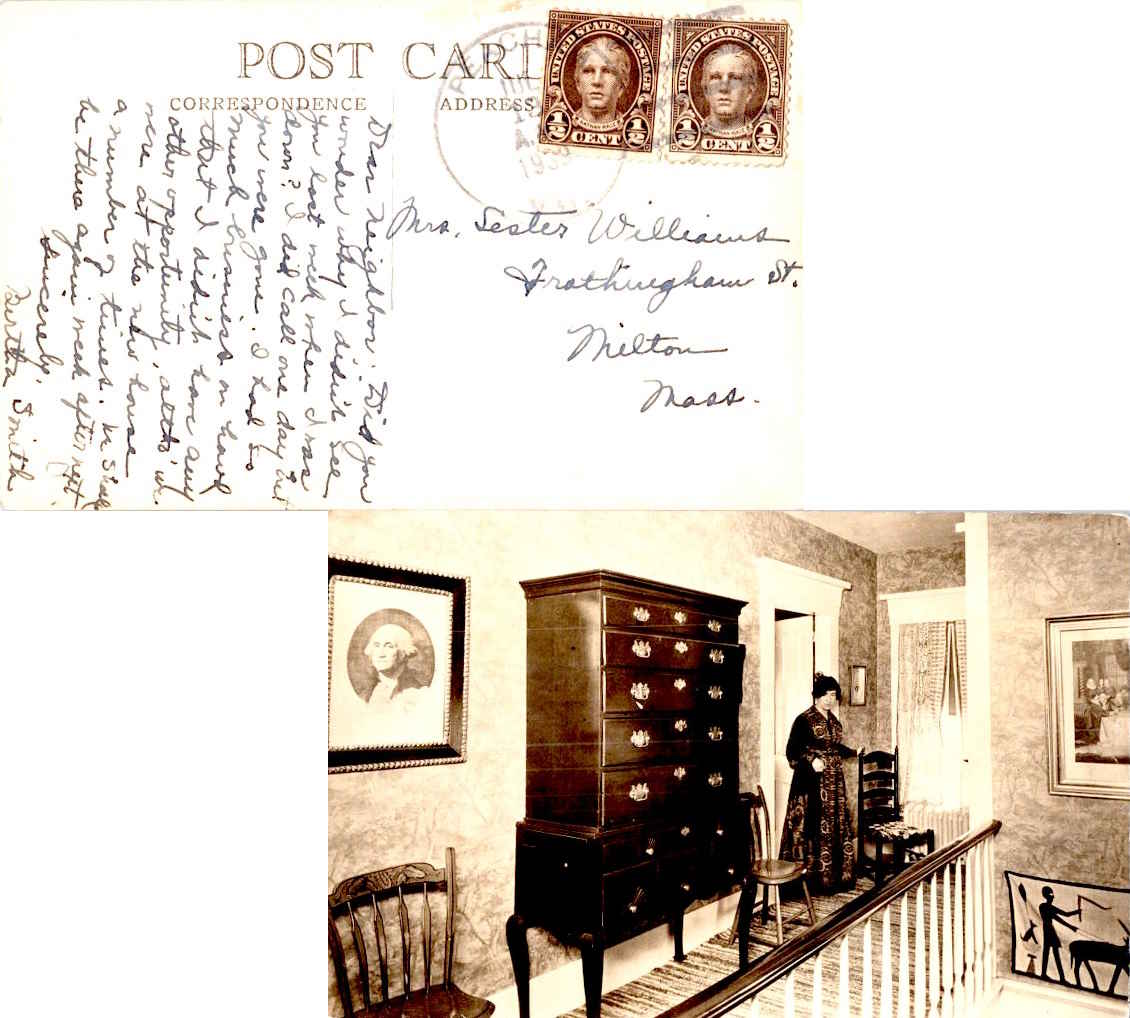 POST CARD
CORRESPONDENCE
ADDRESS
UNITED STATES POSTAGE
NATHAN HALE
1/2 CENT 1/2
UNITED STATES POSTAGE
1/2 CENT 1/2
Mrs. Lester Williams
Frothingham St.
Milton
Mass.
Dear Neighbor: Did you
wonder why I didn't see
you last week when I was
down? I did call one day but
you were gone. I had so
much business on hand
that I didn't have any
other opportunity, altho' we
were at the new house
a number of times. We shall
be there again week after next.
Sincerely,
Bertha Smith